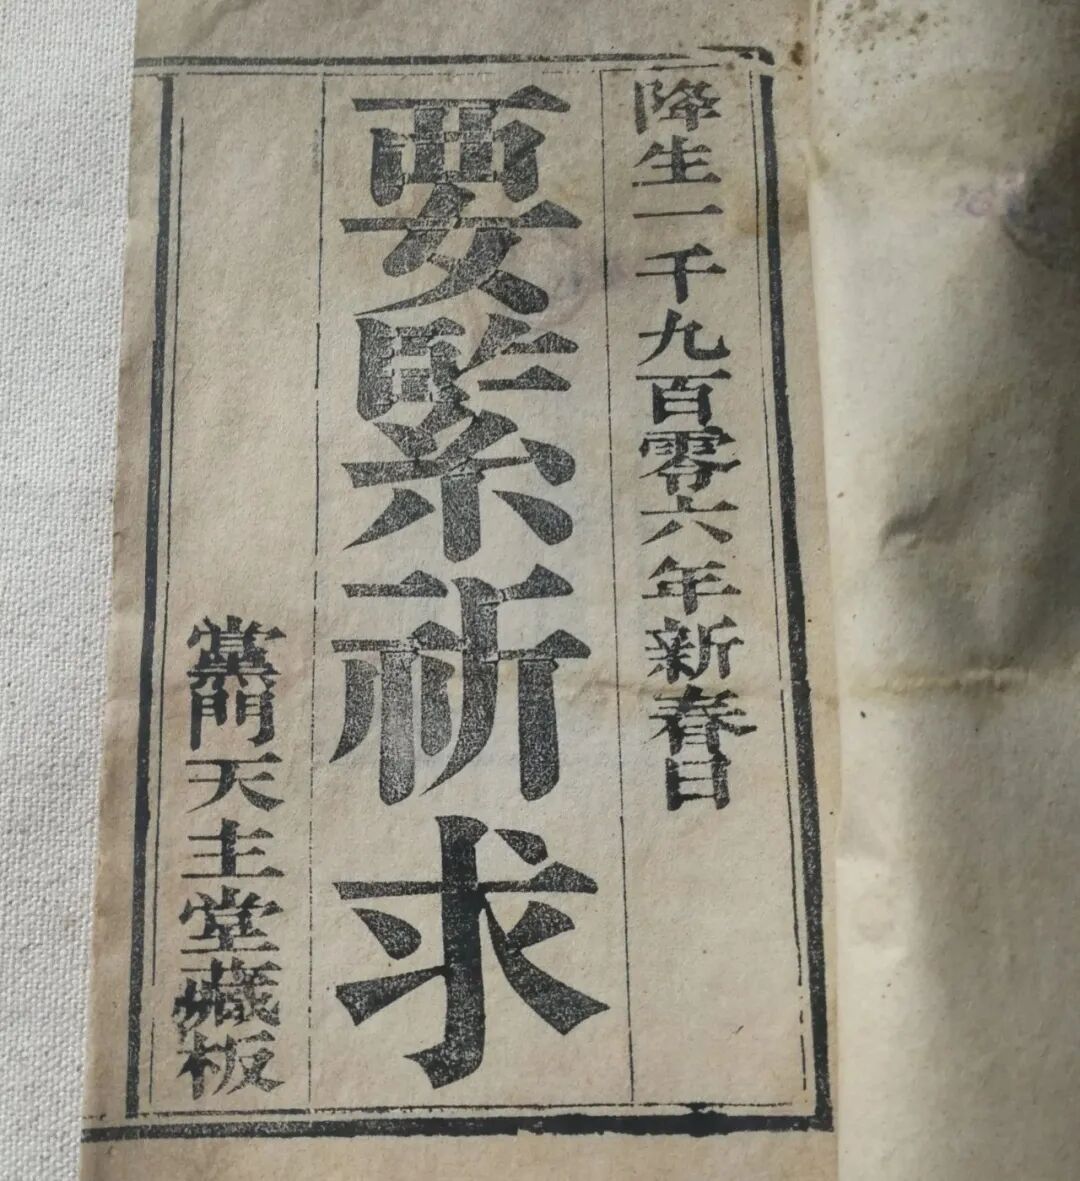 降生一千九百零六年新春日
要緊祈求
黨門天主堂藏板